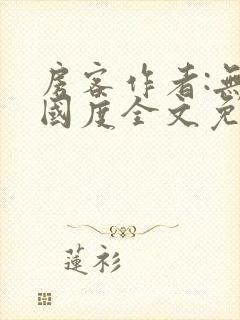 房客作者:無
國度全文免
蓮衫